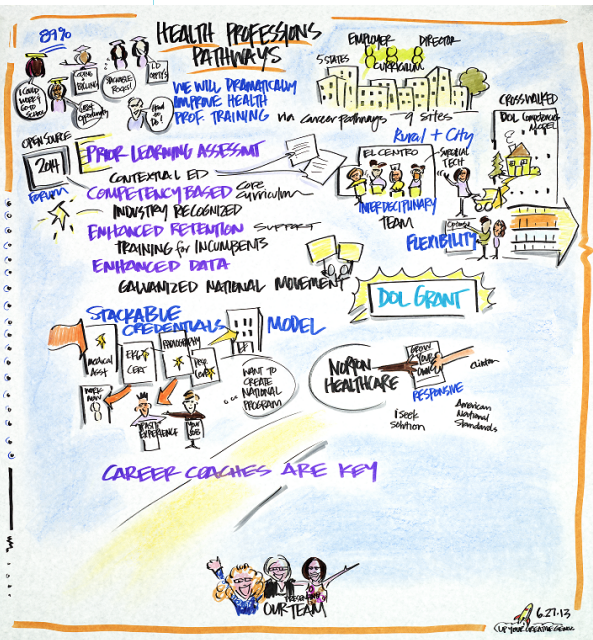 89%
HEALTH PROFESSIONS
PATHWAYS
I COULD
WORK &
GO TO
SCHOOL
CODING +
BILLING
GREAT
Opportunity
STACKABLE
ROCKS!
WE WILL DRAMATICALLY
IMPROVE HEALTH
PROF. TRAINING via Career pathways 9 sites
5 STATES
EMPLOYER DIRECTOR
CURRICULUM
CROSSWALKED
DOL Competencies
MODEL
OPEN SOURCE
2014
FORUM
PRIOR LEARNING ASSESSMT
CONTEXTUAL ED
COMPETENCY BASED Core
Curriculum
INDUSTRY RECOGNIZED
ENHANCED RETENTION SUPPORT
TRAINING for INCUMBENTS
ENHANCED DATA
GALVANIZED NATIONAL MOVEMENT
Rural + City
EL CENTRO
SURGICAL
TECH
INTERDECIPLINARY
TEAM
Options
FLEXIBILITY
DOL GRANT
STACKABLE
CREDENTIALS
MODEL
MEDICAL
ASST
EKG
CERT
RADIOGRAPHY
WORK
NOW
PAST
EXPERIENCE
YOUR
JOB
WANT TO
CREATE
NATIONAL
PROGRAM
NORTON
HEALTHCARE
GROW
YOUR
OWN
RESPONSIVE
Clinton
iSeek
Solution
American
National
Standards
CAREER COACHES ARE KEY
PRESENT
OUR TEAM
6.27.13
UP YOUR CREATIVE GENIUS